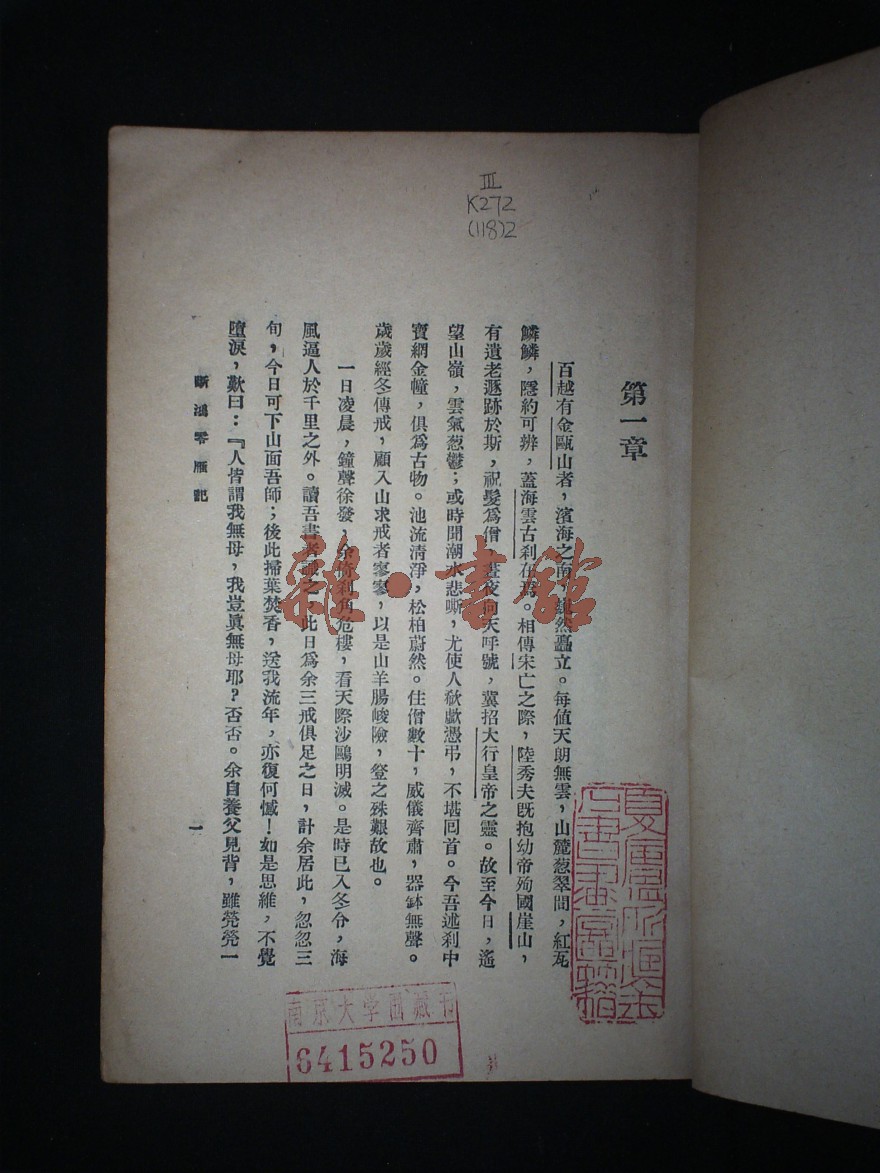 III
K272
(118)2
第一章
百越有金甌山者，濱海之南，巍然矗立。每値天朗無雲，山麓葱翠間，紅瓦
鱗鱗，隱約可辨，蓋海雲古刹在焉。相傳宋亡之際，陸秀夫旣抱幼帝殉國崖山，
有遺老遯跡於斯，祝髮爲僧，晝夜向天呼號，冀招大行皇帝之靈。故至今日，遙
望山嶺，雲氣葱鬱；或時聞潮水悲嘶，尤使人欷歔憑弔，不堪回首。今吾述刹中
寶網金幢，俱爲古物。池流清淨，松柏蔚然。住僧數十，威儀齊肅，器鉢無聲。
歲歲經冬傳戒，顧入山求戒者寥寥，以是山羊腸峻險，登之殊艱故也。
一日凌晨，鐘聲徐發，余倚刹角危樓，看天際沙鷗明滅。是時已入冬令，海
風逼人於千里之外。讀吾書者識之，此日爲余三戒俱足之日，計余居此，忽忽三
旬，今日可下山面吾師；後此掃葉焚香，送我流年，亦復何憾！如是思維，不覺
墮淚，歎曰：『人皆謂我無母，我豈眞無母耶？否否。余自養父見背，雖煢煢一
斷鴻零雁記
一
雜·書館
南京大学图藏书
6415250